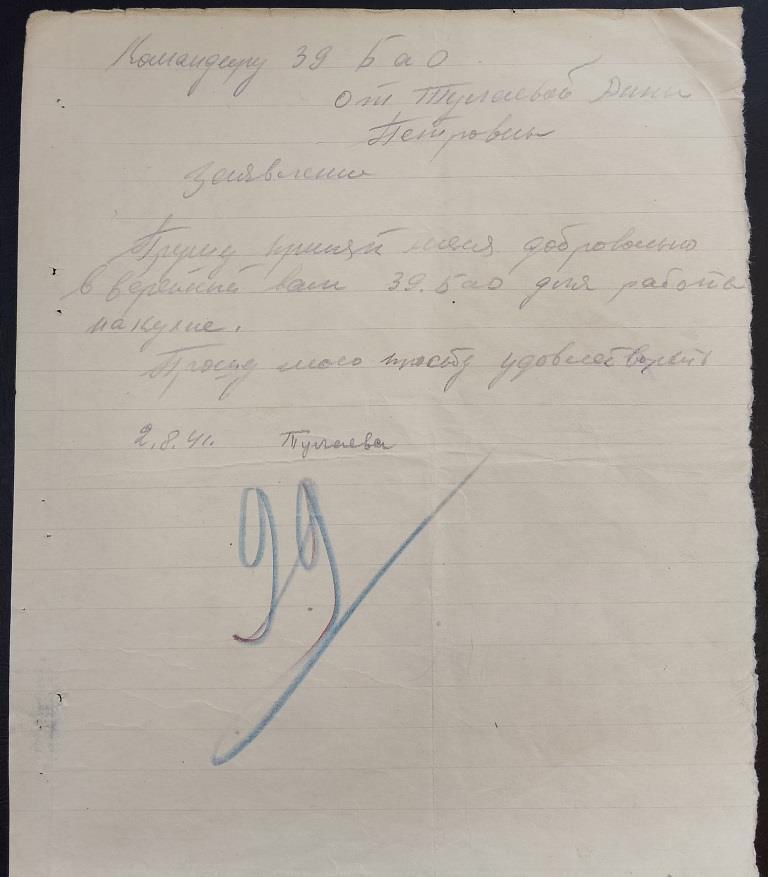 Командеру 39 БаО
от Тулаевой Дины
Петровны
Заявление
Прошу принят меня добровольно
в верений вам 39. Бао для работы
на кухне.
Прошу мою прозбу удовлетворить
2.8.41. Тулаева
99